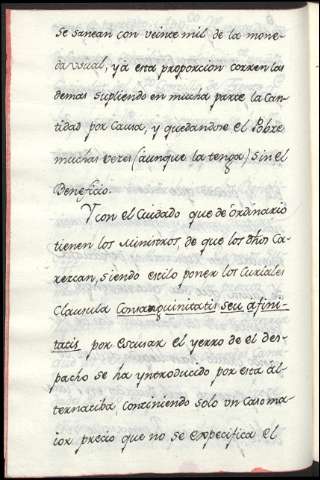 se sanean con veinte mil de la mone-
da usual, y â esta proporcion corren las
demas supliendo en mucha parte la Can-
tidad por Causa, y quedandose el Pobre
muchas veces (aunque la tenga) sin el
Beneficio.
Y con el Cuidado que de ordinario
tienen los Ministros, de que los dhos Ca-
rezcan, siendo estilo poner los Curiales
Clausula Consanguinitatis seu afini-
tatis por escusar el yerro de el des-
pacho se ha yntroducido por esta âl-
ternatiba continiendo solo vn Caso ma-
ior precio que no se expecifica el